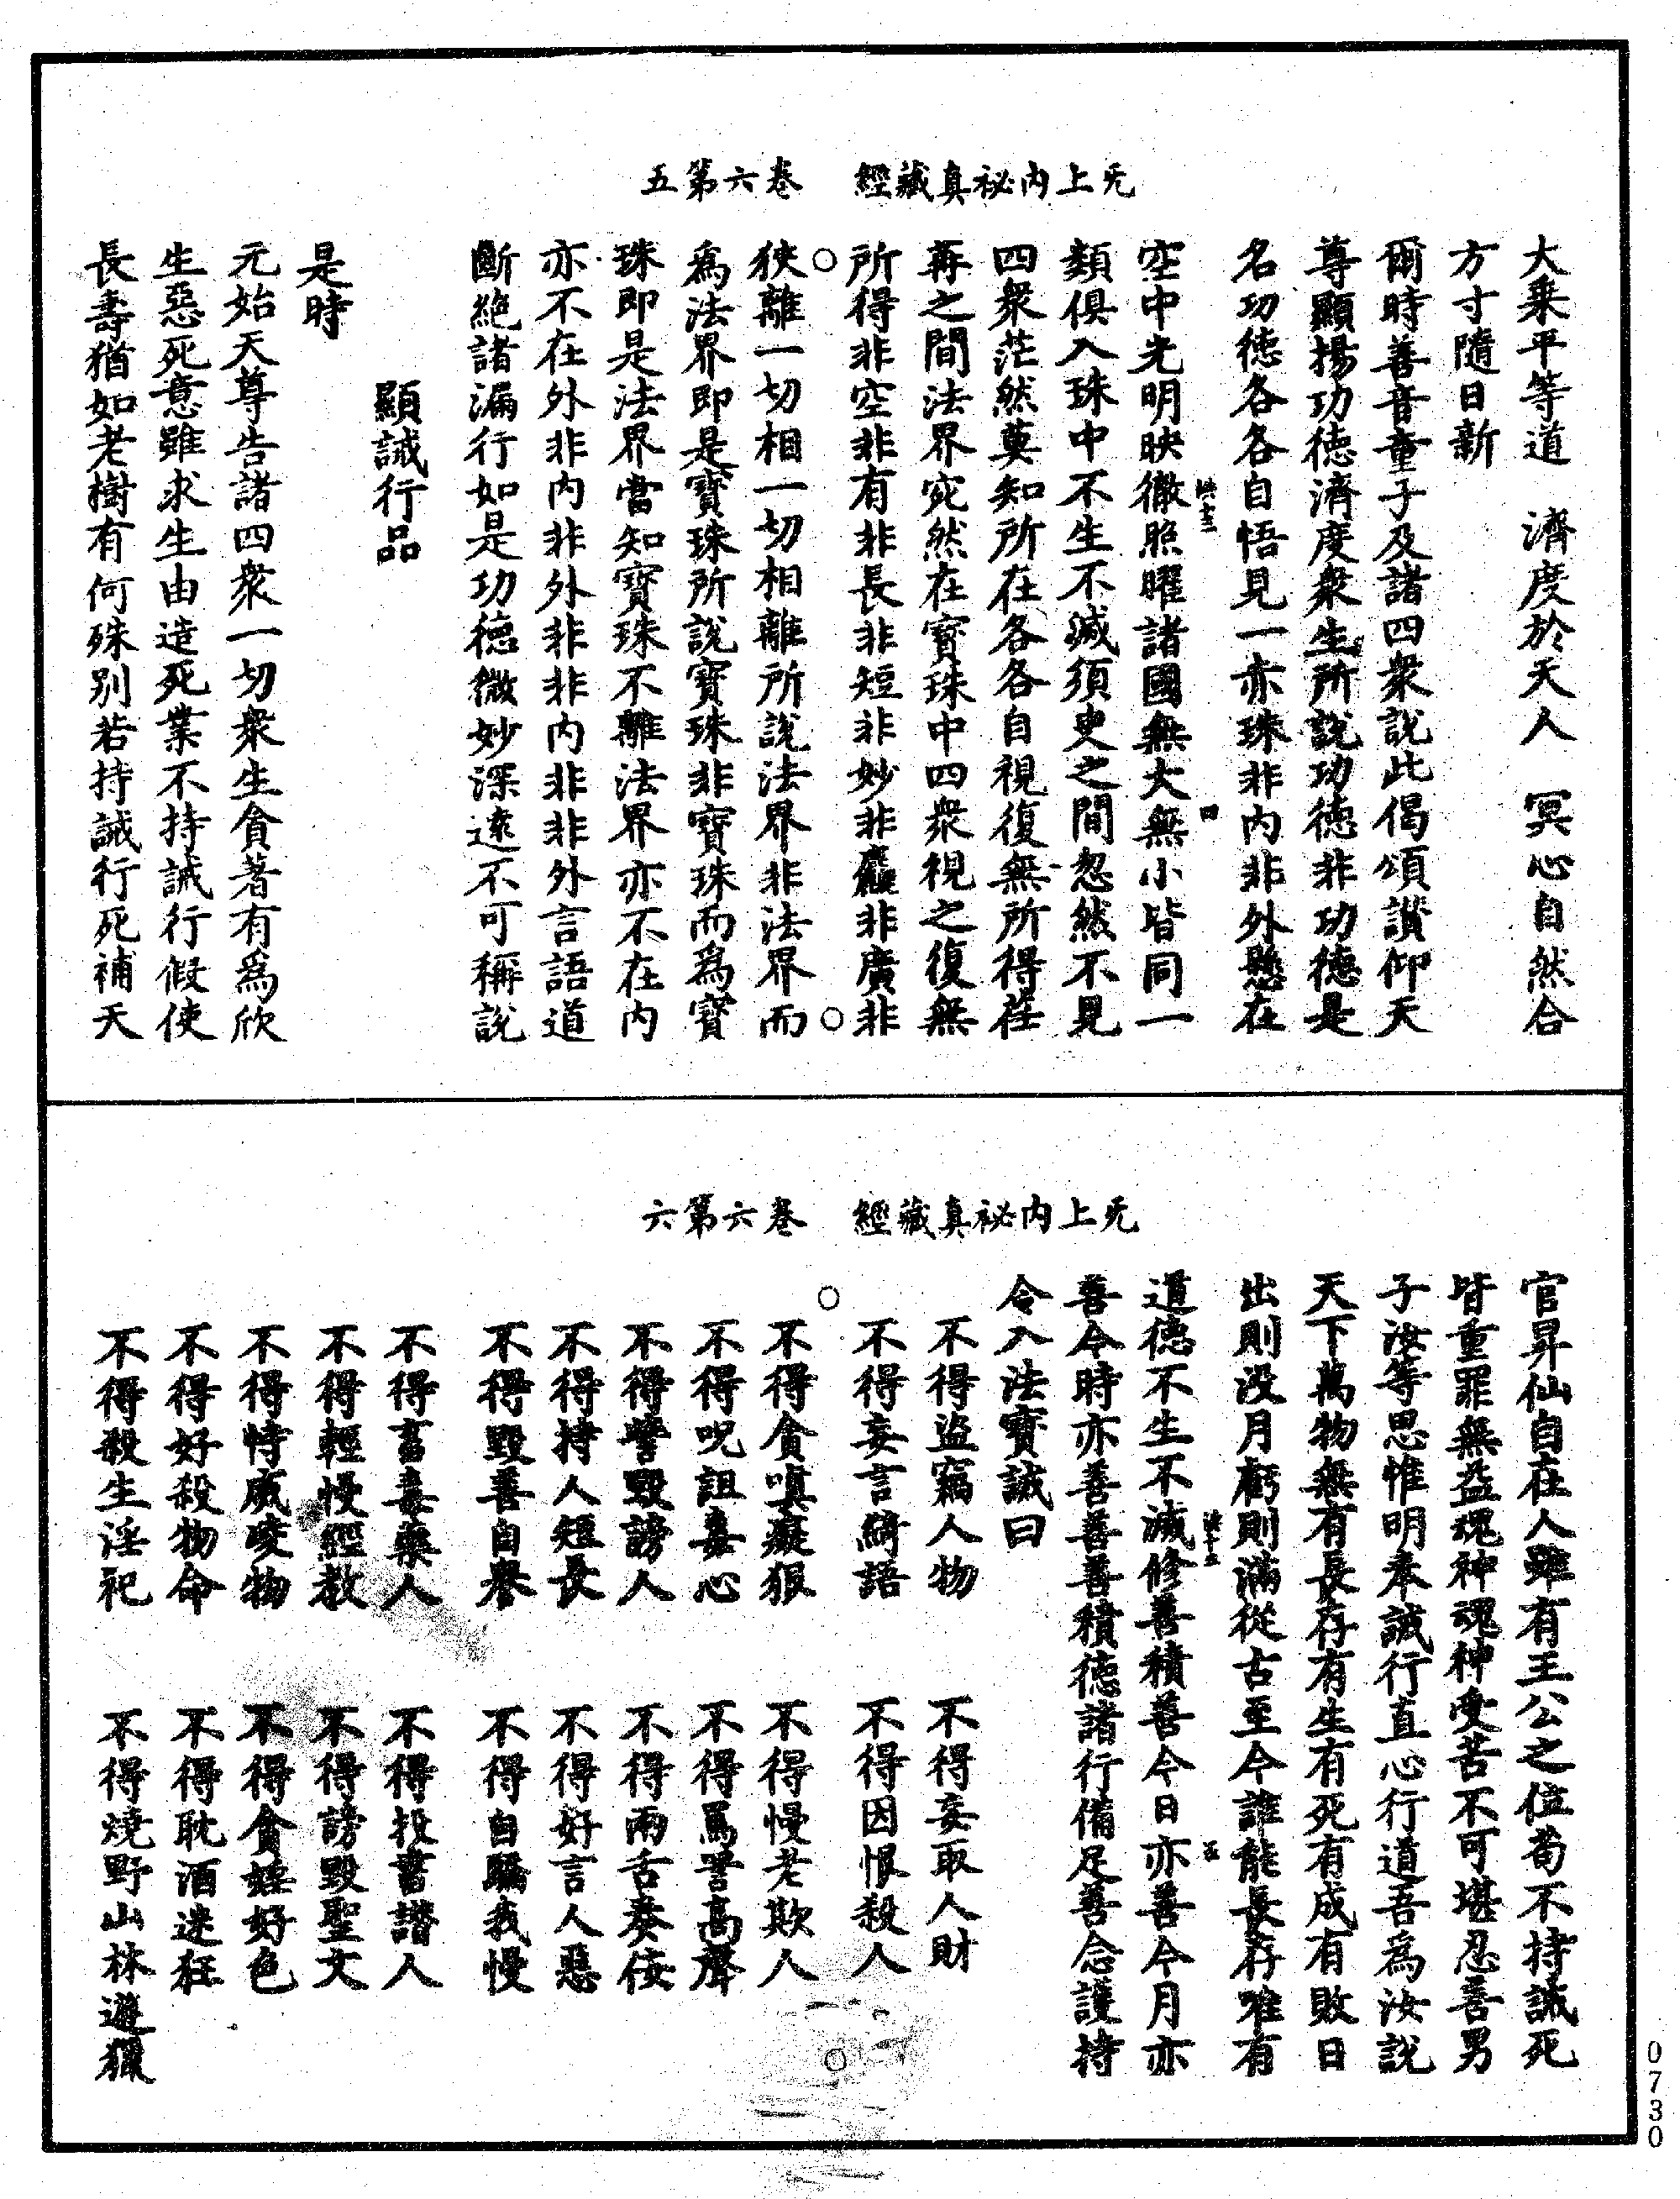 无上內祕真藏經　卷六第五
大乗平等道　濟度於天人　冥心自然合
方寸隨日新
爾時善音童子及諸四衆說此偈頌讃仰天
尊顯揚功德濟度衆生所說功德非功德是
名功德各各自悟見一亦珠非內非外懸在
空中光明映徹照曜諸國無大無小皆同一
類俱入珠中不生不滅須臾之間忽然不見
四衆茫然莫知所在各各自視復無所得荏
苒之間法界宛然在寶珠中四衆視之復無
所得非空非有非長非短非妙非麤非廣非
狹離一切相一切相離所說法界非法界而
爲法界即是寶珠所說寶珠非寶珠而爲寶
珠即是法界當知寶珠不離法界亦不在內
亦不在外非內非外非非內非非外言語道
斷絶諸漏行如是功德微妙深遠不可稱說
顯誡行品
是時
元始天尊告諸四衆一切衆生貪著有爲欣
生惡死意雖求生由造死業不持誡行假使
長壽猶如老樹有何殊別若持誡行死補天
无上內祕真藏經　卷六第六
官昇仙自在人雖有王公之位苟不持誡死
皆重罪無益魂神魂神受苦不可堪忍善男
子汝等思惟明奉誡行直心行道吾爲汝說
天下萬物無有長存有生有死有成有敗日
出則没月虧則滿從古至今誰能長存唯有
道德不生不滅修善積善今日亦善今月亦
善今時亦善善善積德諸行備足善念護持
令入法寶誡曰
不得盜竊人物　不得妄取人財
不得妄言綺語　不得因恨殺人
不得貪嗔癡狠　不得慢老欺人
不得呪詛毒心　不得罵詈高聲
不得訾毀謗人　不得兩舌奏侫
不得持人短長　不得好言人惡
不得毀善自譽　不得自驕我慢
不得畜毒藥人　不得投書譖人
不得輕慢經教　不得謗毀聖文
不得恃威凌物　不得貪婬好色
不得好殺物命　不得耽酒迷狂
不得殺生淫祀　不得燒野山林遊獵
0730